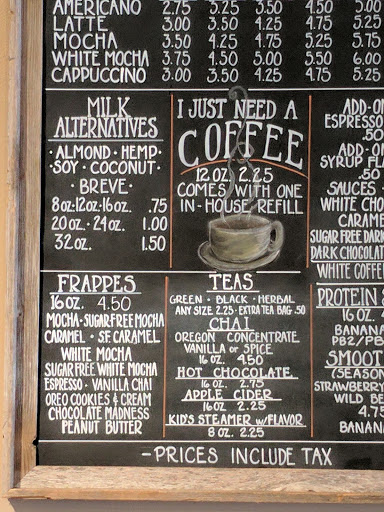 AMERICANO 2.75 3.25 3.50 4.00 5.00
LATTE 3.00 3.50 4.00 4.50 5.25
MOCHA 3.50 4.25 4.75 5.25 5.75
WHITE MOCHA 3.75 4.50 5.00 5.50 6.00
CAPPUCCINO 3.00 3.50 4.25 4.75 5.25
MILK
ALTERNATIVES
· ALMOND · HEMP ·
· SOY · COCONUT ·
· BREVE ·
8oz·12oz·16oz. .75
20oz. · 24oz. 1.00
32oz. 1.50
I JUST NEED A
COFFEE
12 OZ. 2.25
COMES WITH ONE
IN-HOUSE REFILL
ADD-ON
ESPRESSO
.50
ADD-ON
SYRUP FLA
.50
SAUCES
WHITE CHO
CARAME
SUGAR FREE DARK
DARK CHOCOLAT
WHITE COFFEE
FRAPPES
16 OZ. 4.50
MOCHA · SUGAR FREE MOCHA
CARAMEL · S.F. CARAMEL
WHITE MOCHA
SUGAR FREE WHITE MOCHA
ESPRESSO · VANILLA CHAI
OREO COOKIES & CREAM
CHOCOLATE MADNESS
PEANUT BUTTER
TEAS
GREEN · BLACK · HERBAL
ANY SIZE 2.25 · EXTRA TEA BAG .50
CHAI
OREGON CONCENTRATE
VANILLA or SPICE
16 OZ. 4.50
HOT CHOCOLATE
16 OZ. 2.75
APPLE CIDER
16 OZ. 2.25
KID'S STEAMER w/FLAVOR
8 OZ. 2.25
PROTEIN S
16 OZ. 4
BANANA
PB2/PB
SMOOT
(SEASON
STRAWBERRY
WILD BE
4.75
BANANA
-PRICES INCLUDE TAX